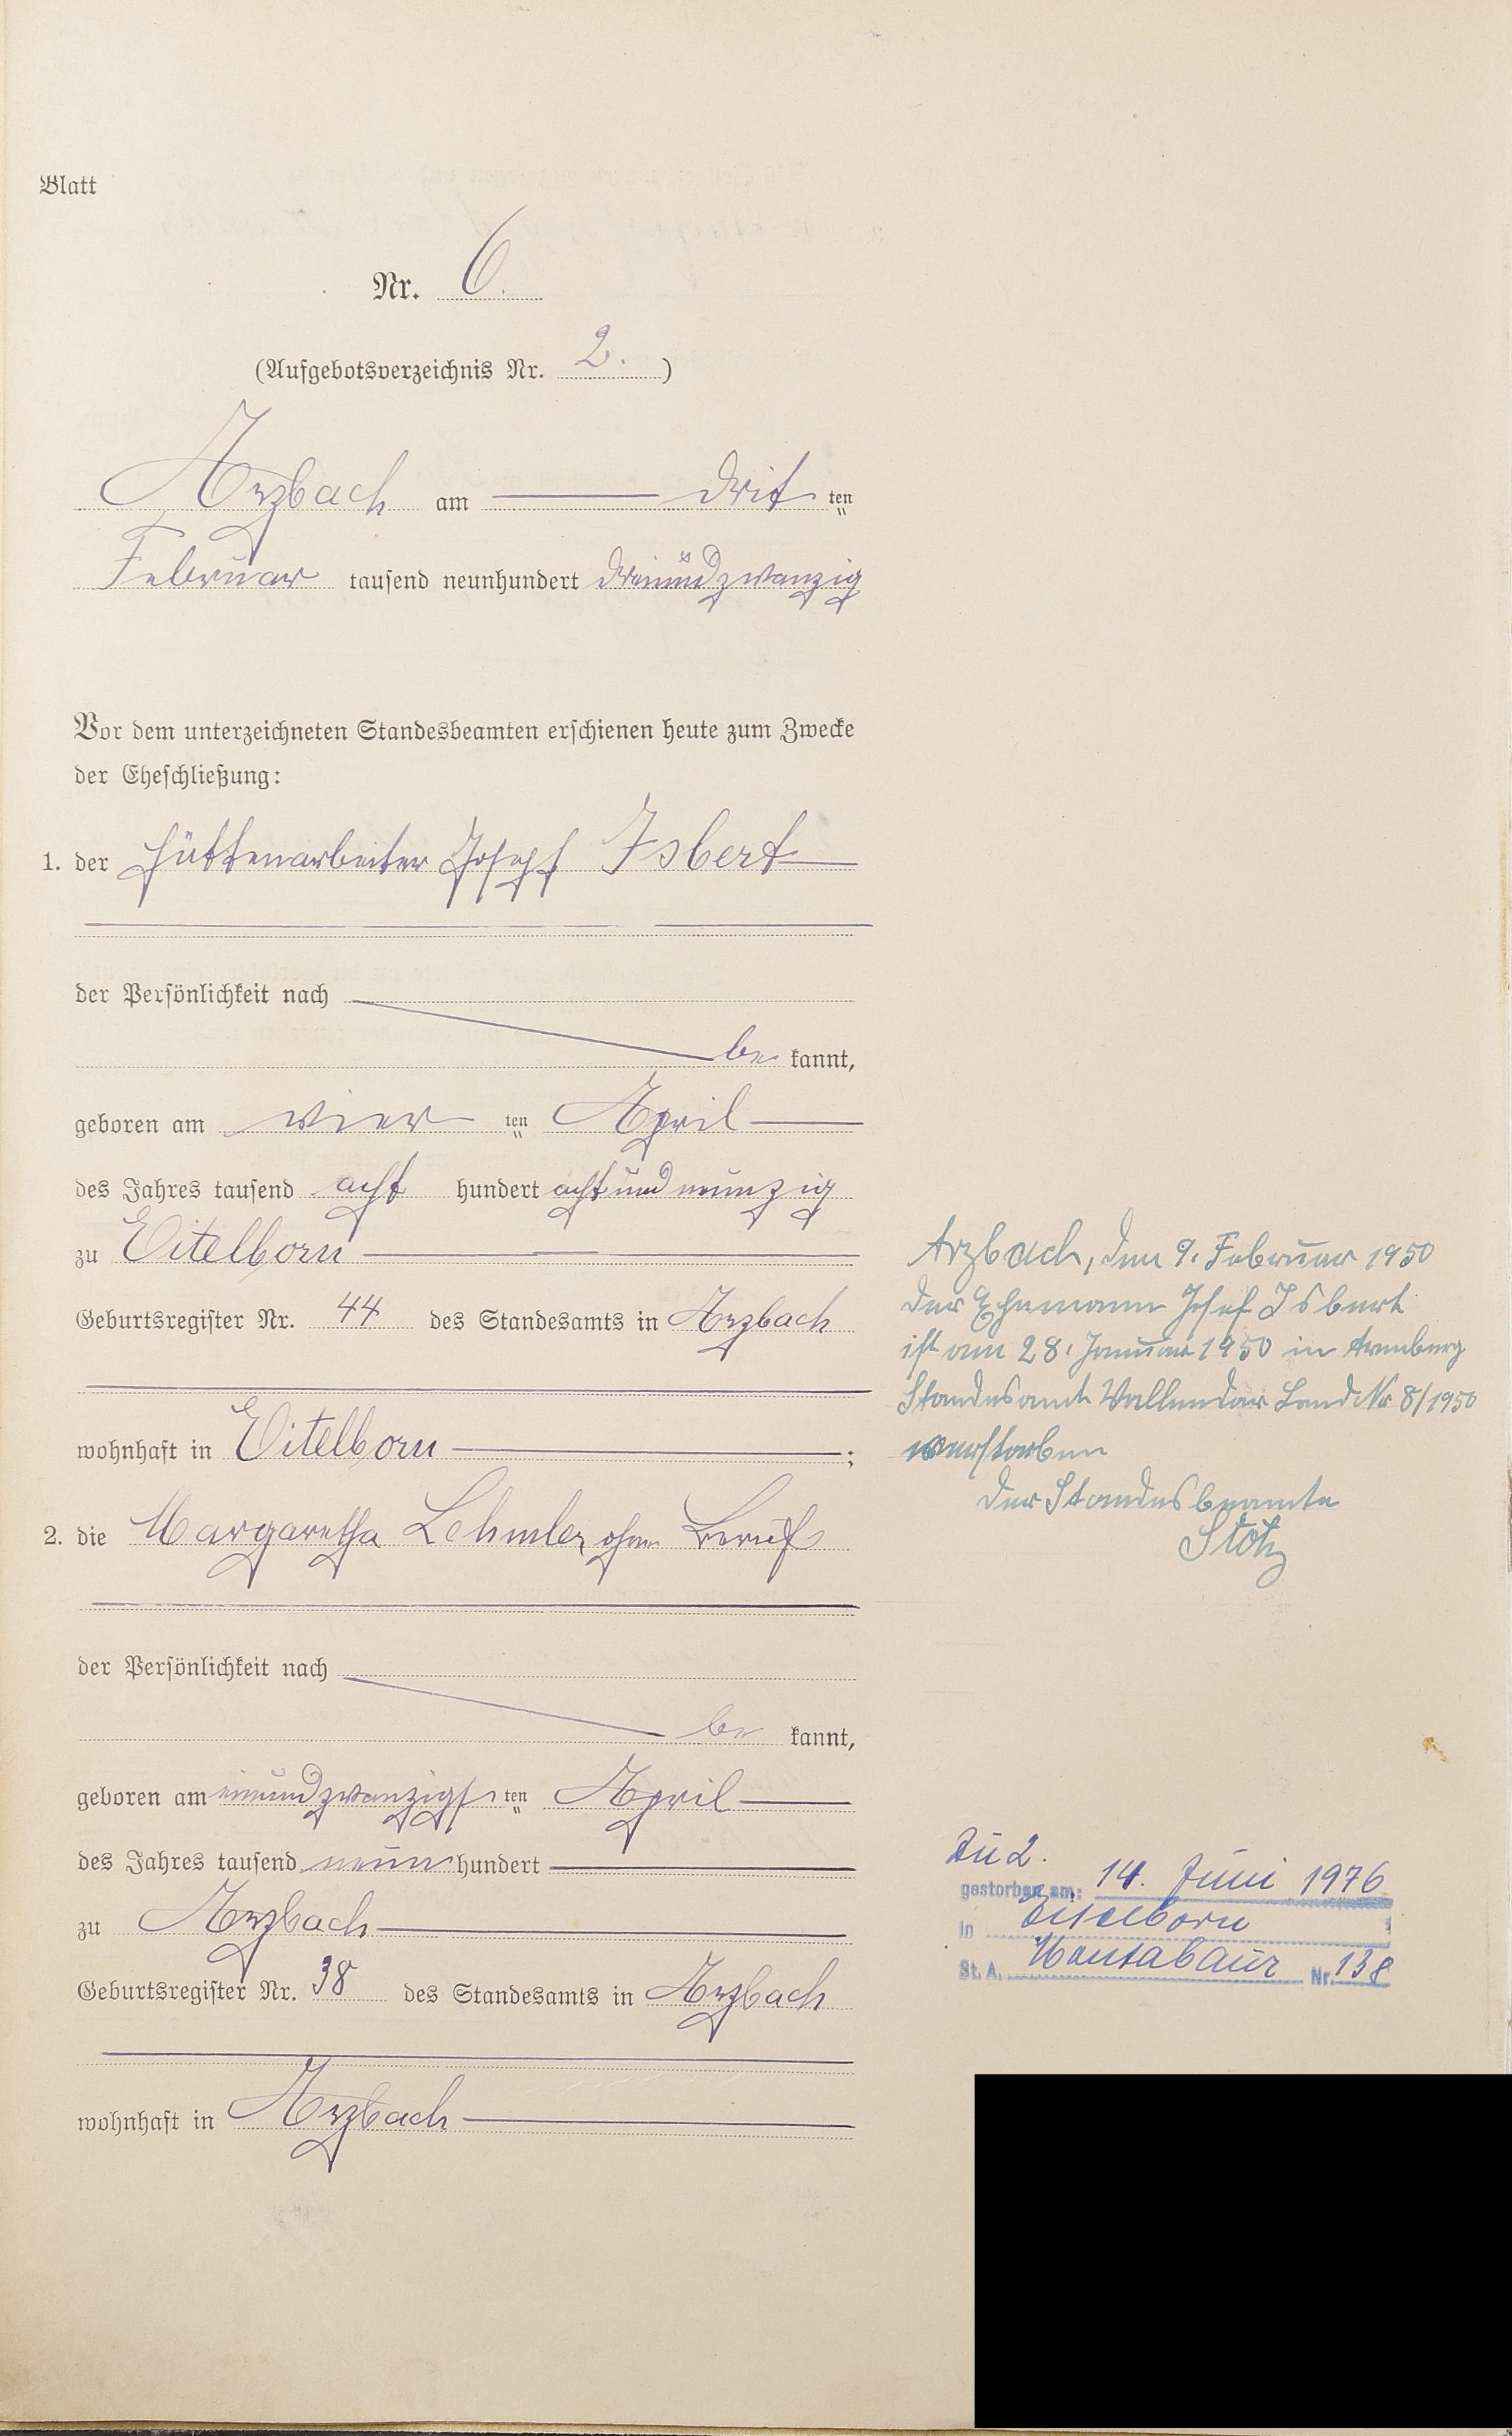 Blatt
Nr. 6.
(Aufgebotsverzeichnis Nr. 2.)
Arzbach am drit ten
Februar tausend neunhundert dreiundzwanzig
Vor dem unterzeichneten Standesbeamten erschienen heute zum Zwecke
der Eheschließung:
1. der Hüttenarbeiter Joseph Isbert
der Persönlichkeit nach
be kannt,
geboren am vier ten April
des Jahres tausend acht hundert achtundneunzig
zu Eitelborn
Geburtsregister Nr. 44 des Standesamts in Arzbach
wohnhaft in Eitelborn ;
2. die Margaretha Lehmler ohne Beruf
der Persönlichkeit nach
be kannt,
geboren am einundzwanzigs ten April
des Jahres tausend neun hundert
zu Arzbach
Geburtsregister Nr. 38 des Standesamts in Arzbach
wohnhaft in Arzbach
Arzbach, den 9. Februar 1950
Der Ehemann Josef Isbert
ist am 28. Januar 1950 in Arenberg
Standesamt Vallendar Land Nr 8/1950
verstorben
Der Standesbeamte
Stotz
Zu 2.
gestorben am: 14. Juni 1976
in Eitelborn
St. A. Montabaur Nr. 138